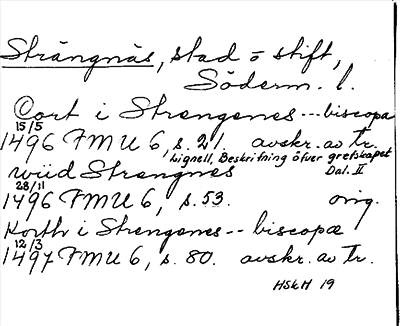 Strängnäs, stad o stift,
Söderm. l.
Cort i Strengenes --- biscopa
15/5
1496 FMU 6, s. 21. avskr. av tr.
Lignell, Beskrifning öfver grefskapet
Dal. II
wiid Strengnes
28/11
1496 FMU 6, s. 53. orig.
Korth i Strengenes -- biscopæ
12/3
1497 FMU 6, s. 80. avskr. av tr.
HSkH 19